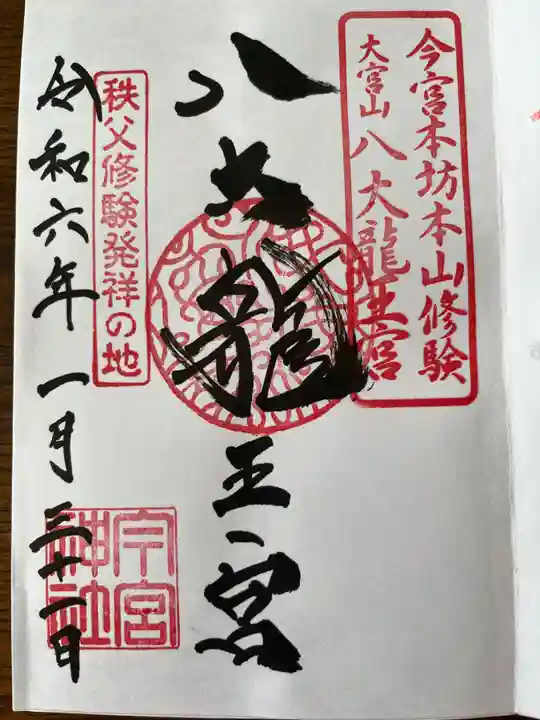 今宮本坊本山修験
大宮山八大龍王宮
八大龍王宮
秩父修験発祥の地
令和六年一月三十一日
今宮
神社